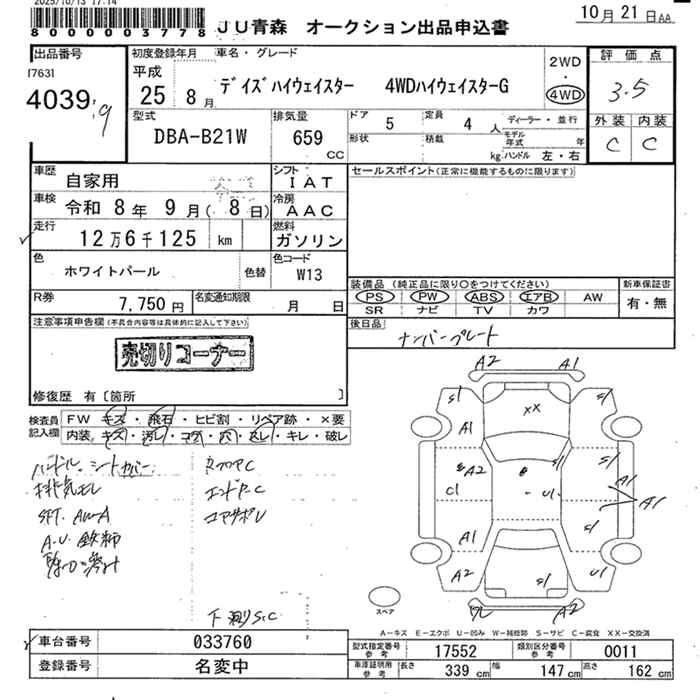 2025/10/13 17:14
80000003778
JU青森 オークション出品申込書
10月21日AA
出品番号
17631
4039
初度登録年月
平成
25 8月
車名・グレード
デイズハイウェイスター 4WDハイウェイスターG
2WD
・
4WD
評価点
3.5
外装 内装
C C
型式
DBA-B21W
排気量
659
CC
ドア 5
定員 4 人
形状
積載 kg
ディーラー・並行
モデル年式 年
ハンドル 左・右
車歴 自家用
車検 令和 8年 9月(8日)
走行
12万6千125 km
シフト
IAT
冷房
AAC
燃料
ガソリン
セールスポイント(正常に機能するものに限ります)
色
ホワイトパール
色替
色コード
W13
R券 7,750円
名変通知期限 月 日
装備品 (純正品に限り○をつけてください)
PS PW ABS エアB AW
SR ナビ TV カワ
新車保証書
有・無
後日品
ナンバープレート
注意事項申告欄(不具合内容等は具体的に記入して下さい)
売切りコーナー
修復歴 有〔箇所 〕
検査員記入欄
FW キズ・飛石・ヒビ割・リペア跡・×要
内装 キズ・汚レ・コゲ・穴・スレ・キレ・破レ
ハンドル・シートカバー
排気モレ
下廻りS.C
A2 A1
S1 XX S1
A1
A2 S1
C1 U1 A1 A1
A1 S1
A2 S1 U1
A2
スペア
A-キズ E-エクボ U-凹み W-補修跡 S-サビ C-腐食 XX-交換済
車台番号 033760
登録番号 名変中
型式指定番号 参考 17552
類別区分番号 参考 0011
車庫証明用 参考 長さ 339cm 幅 147cm 高さ 162cm